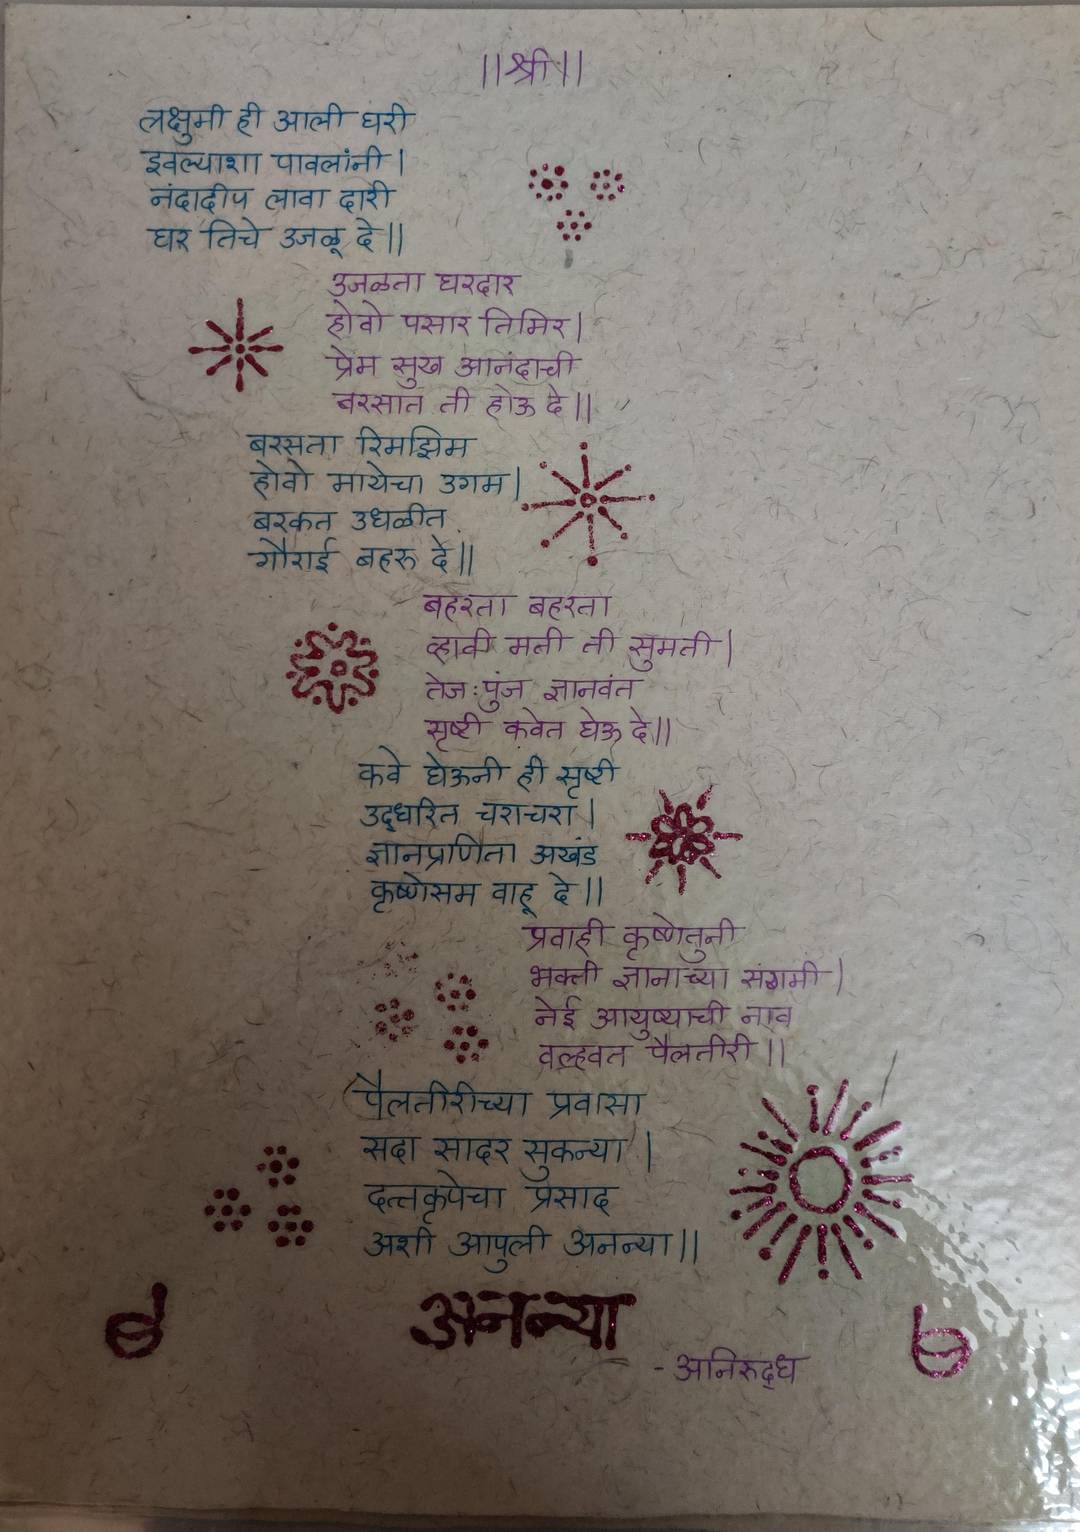 ||श्री||
लक्षुमी ही आली घरी
इवल्याशा पावलांनी |
नंदादीप लावा दारी
घर तिचे उजळू दे ||
उजळता घरदार
होवो पसार तिमिर |
प्रेम सुख आनंदाची
बरसात ती होऊ दे ||
बरसता रिमझिम
होवो मायेचा उगम |
बरकत उधळीत
गौराई बहरू दे ||
बहरता बहरता
व्हावी मती ती सुमती |
तेजःपुंज ज्ञानवंत
सृष्टी कवेत घेऊ दे ||
कवे घेऊनी ही सृष्टी
उद्धरित चराचरा |
ज्ञानप्राणिता अखंड
कृष्णेसम वाहू दे ||
प्रवाही कृष्णेतुनी
भक्ती ज्ञानाच्या संगमी |
नेई आयुष्याची नाव
वल्हवत पैलतीरी ||
पैलतीरीच्या प्रवासा
सदा सादर सुकन्या |
दत्तकृपेचा प्रसाद
अशी आपुली अनन्या ||
अनन्या
- अनिरुद्ध